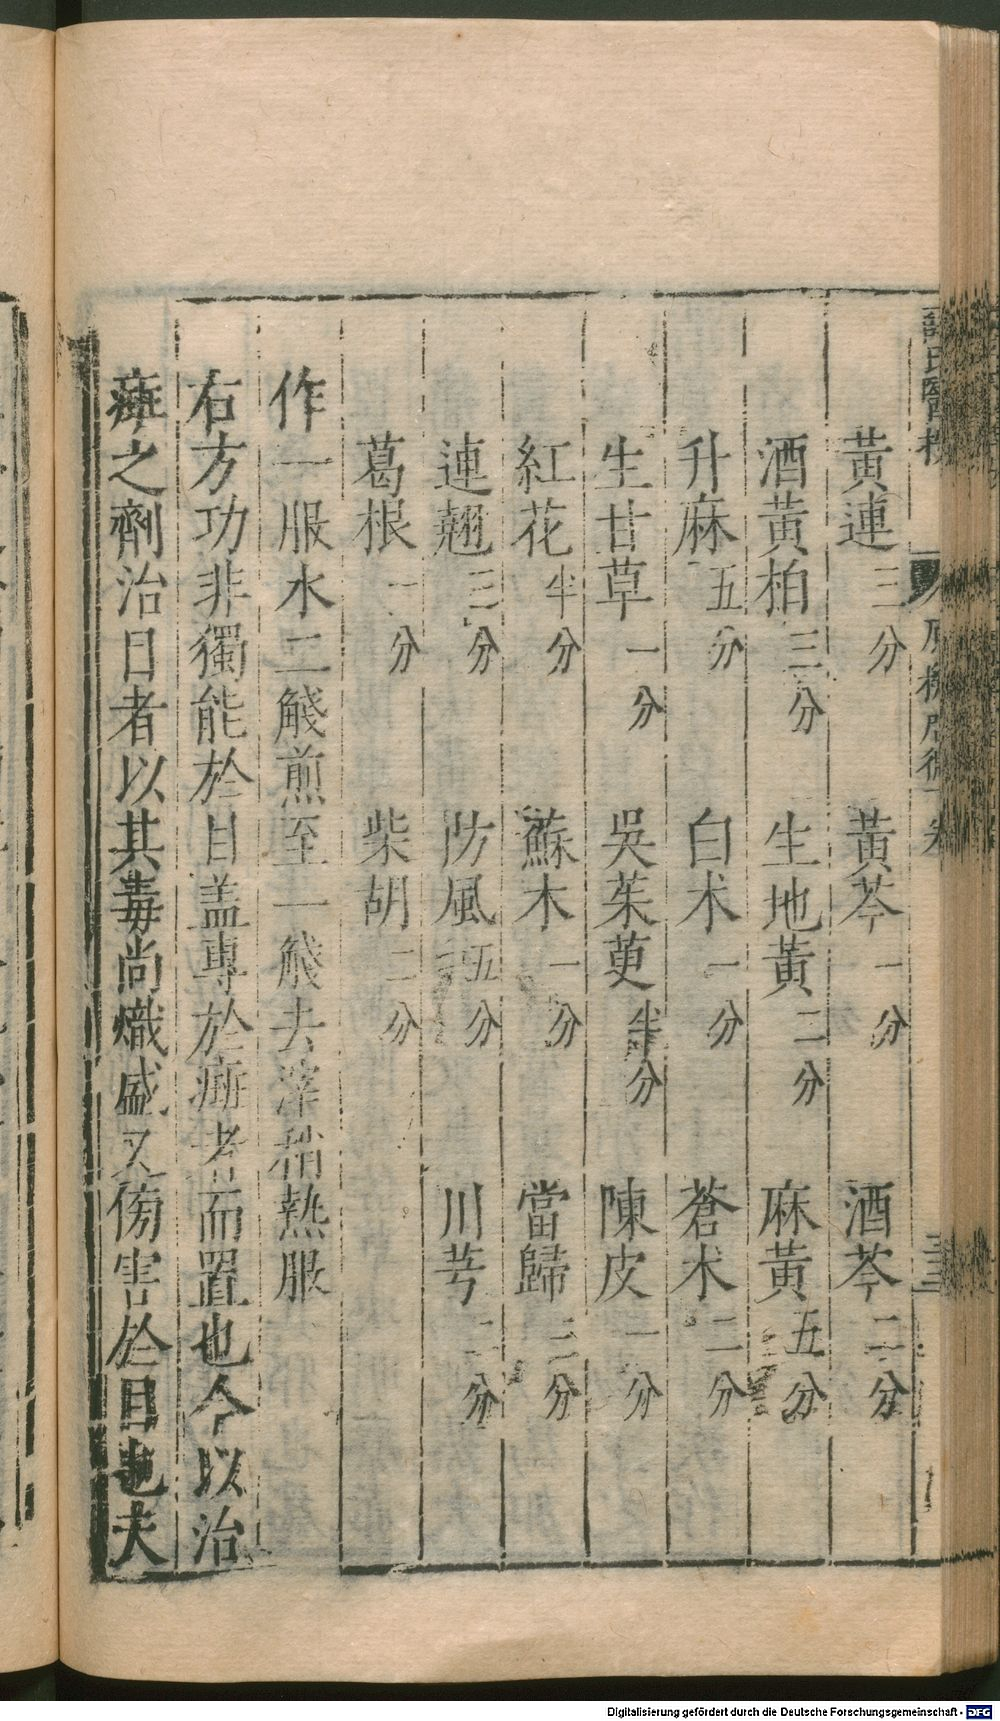 黃連三分 黃芩一分 酒芩二分
酒黃柏三分 生地黃二分 麻黃五分
升麻五分 白术一分 蒼术二分
生甘草一分 吳茱萸半分 陳皮一分
紅花半分 蘇木一分 當歸三分
連翹三分 防風五分 川芎二分
葛根一分 柴胡二分
作一服水二觥煎至一觥去滓稍熱服
右方功非獨能於目盖專於㾦者而置也今以治
㾦之劑治目者以其毒尚熾盛又傍害於目也夫
氏醫
原機啓微 卷
Digitalisierung gefördert durch die Deutsche Forschungsgemeinschaft - DFG